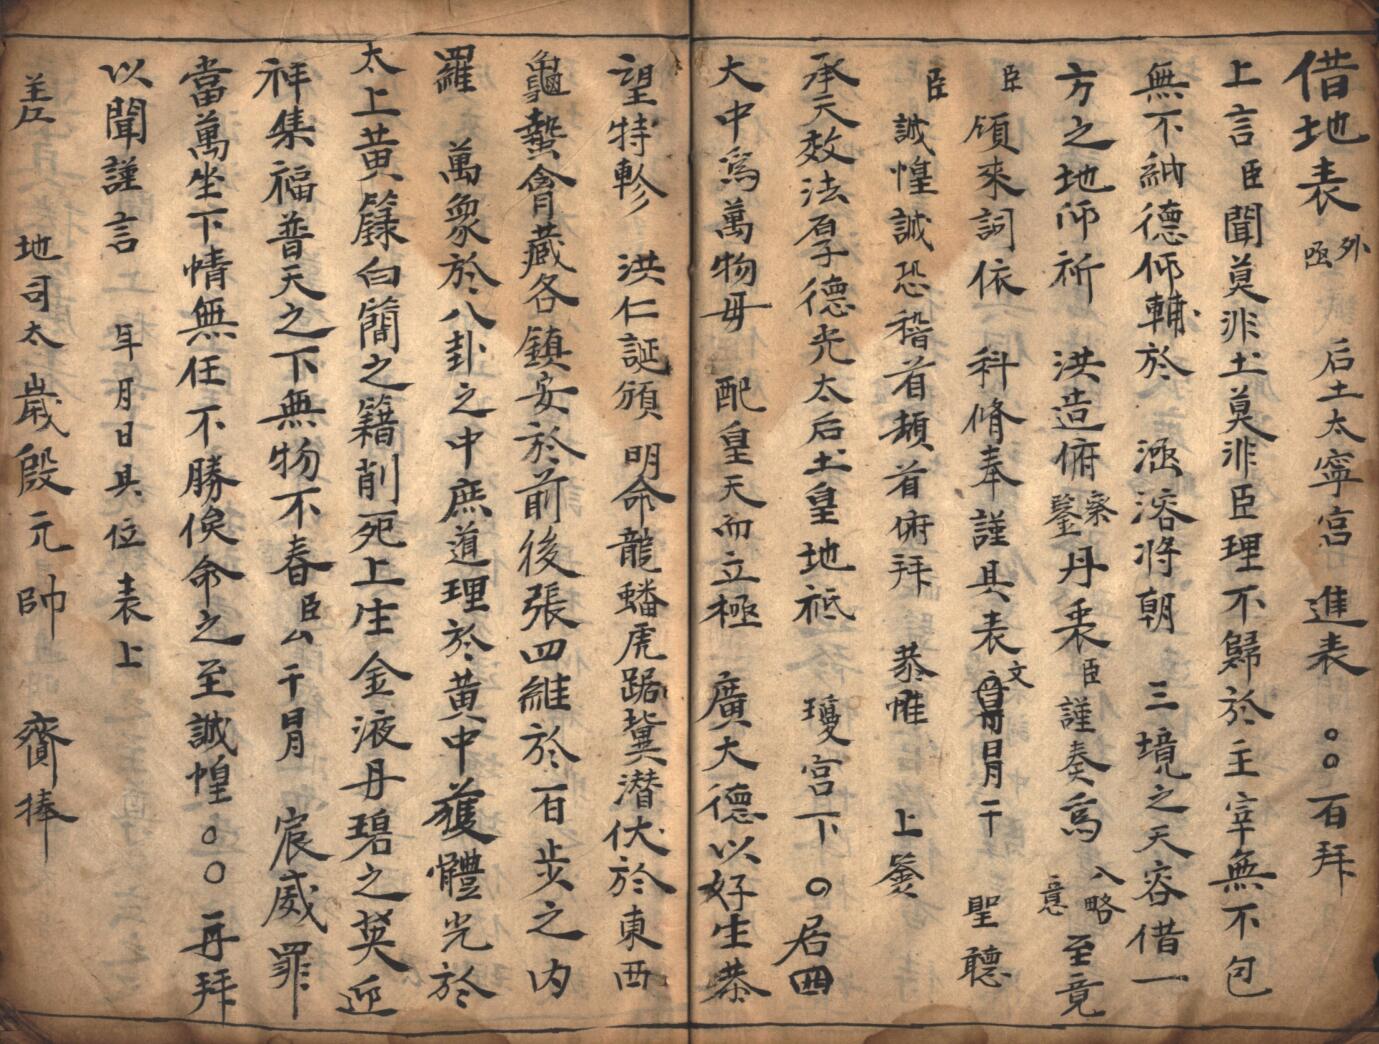 借地表 外函 后土太寧宮 進表 〇〇百拜
上言臣聞莫非土莫非臣理不歸於主宰無不包
無不納德仰輔於 涵溶將朝 三境之天容借一
方之地仰祈 洪造俯察鑒丹衷臣謹奏為 入意略 至竟
臣 領來詞依 科修奉謹具表文 冒干 聖聽
臣 誠惶誠恐稽首頓首俯拜 恭惟 上參
承天效法厚德光太后土皇地祇 瓊宮下 〇居四
大中為萬物母 配皇天而立極 廣大德以好生恭
望特軫 洪仁誕頒 明命龍蟠虎踞冀潛伏於東西
龜蟄龠藏各鎮安於前後張四維於百步之內
羅 萬象於八卦之中庶道理於黃中獲體光於
太上黃籙白簡之籍削死上生金液丹碧之英迎
祥集福普天之下無物不春臣厶干冒 宸威罪
當萬坐下情無任不勝俟命之至誠惶〇〇再拜
以聞謹言 年月日具位表上
差 地司太歲殷元帥 齎捧